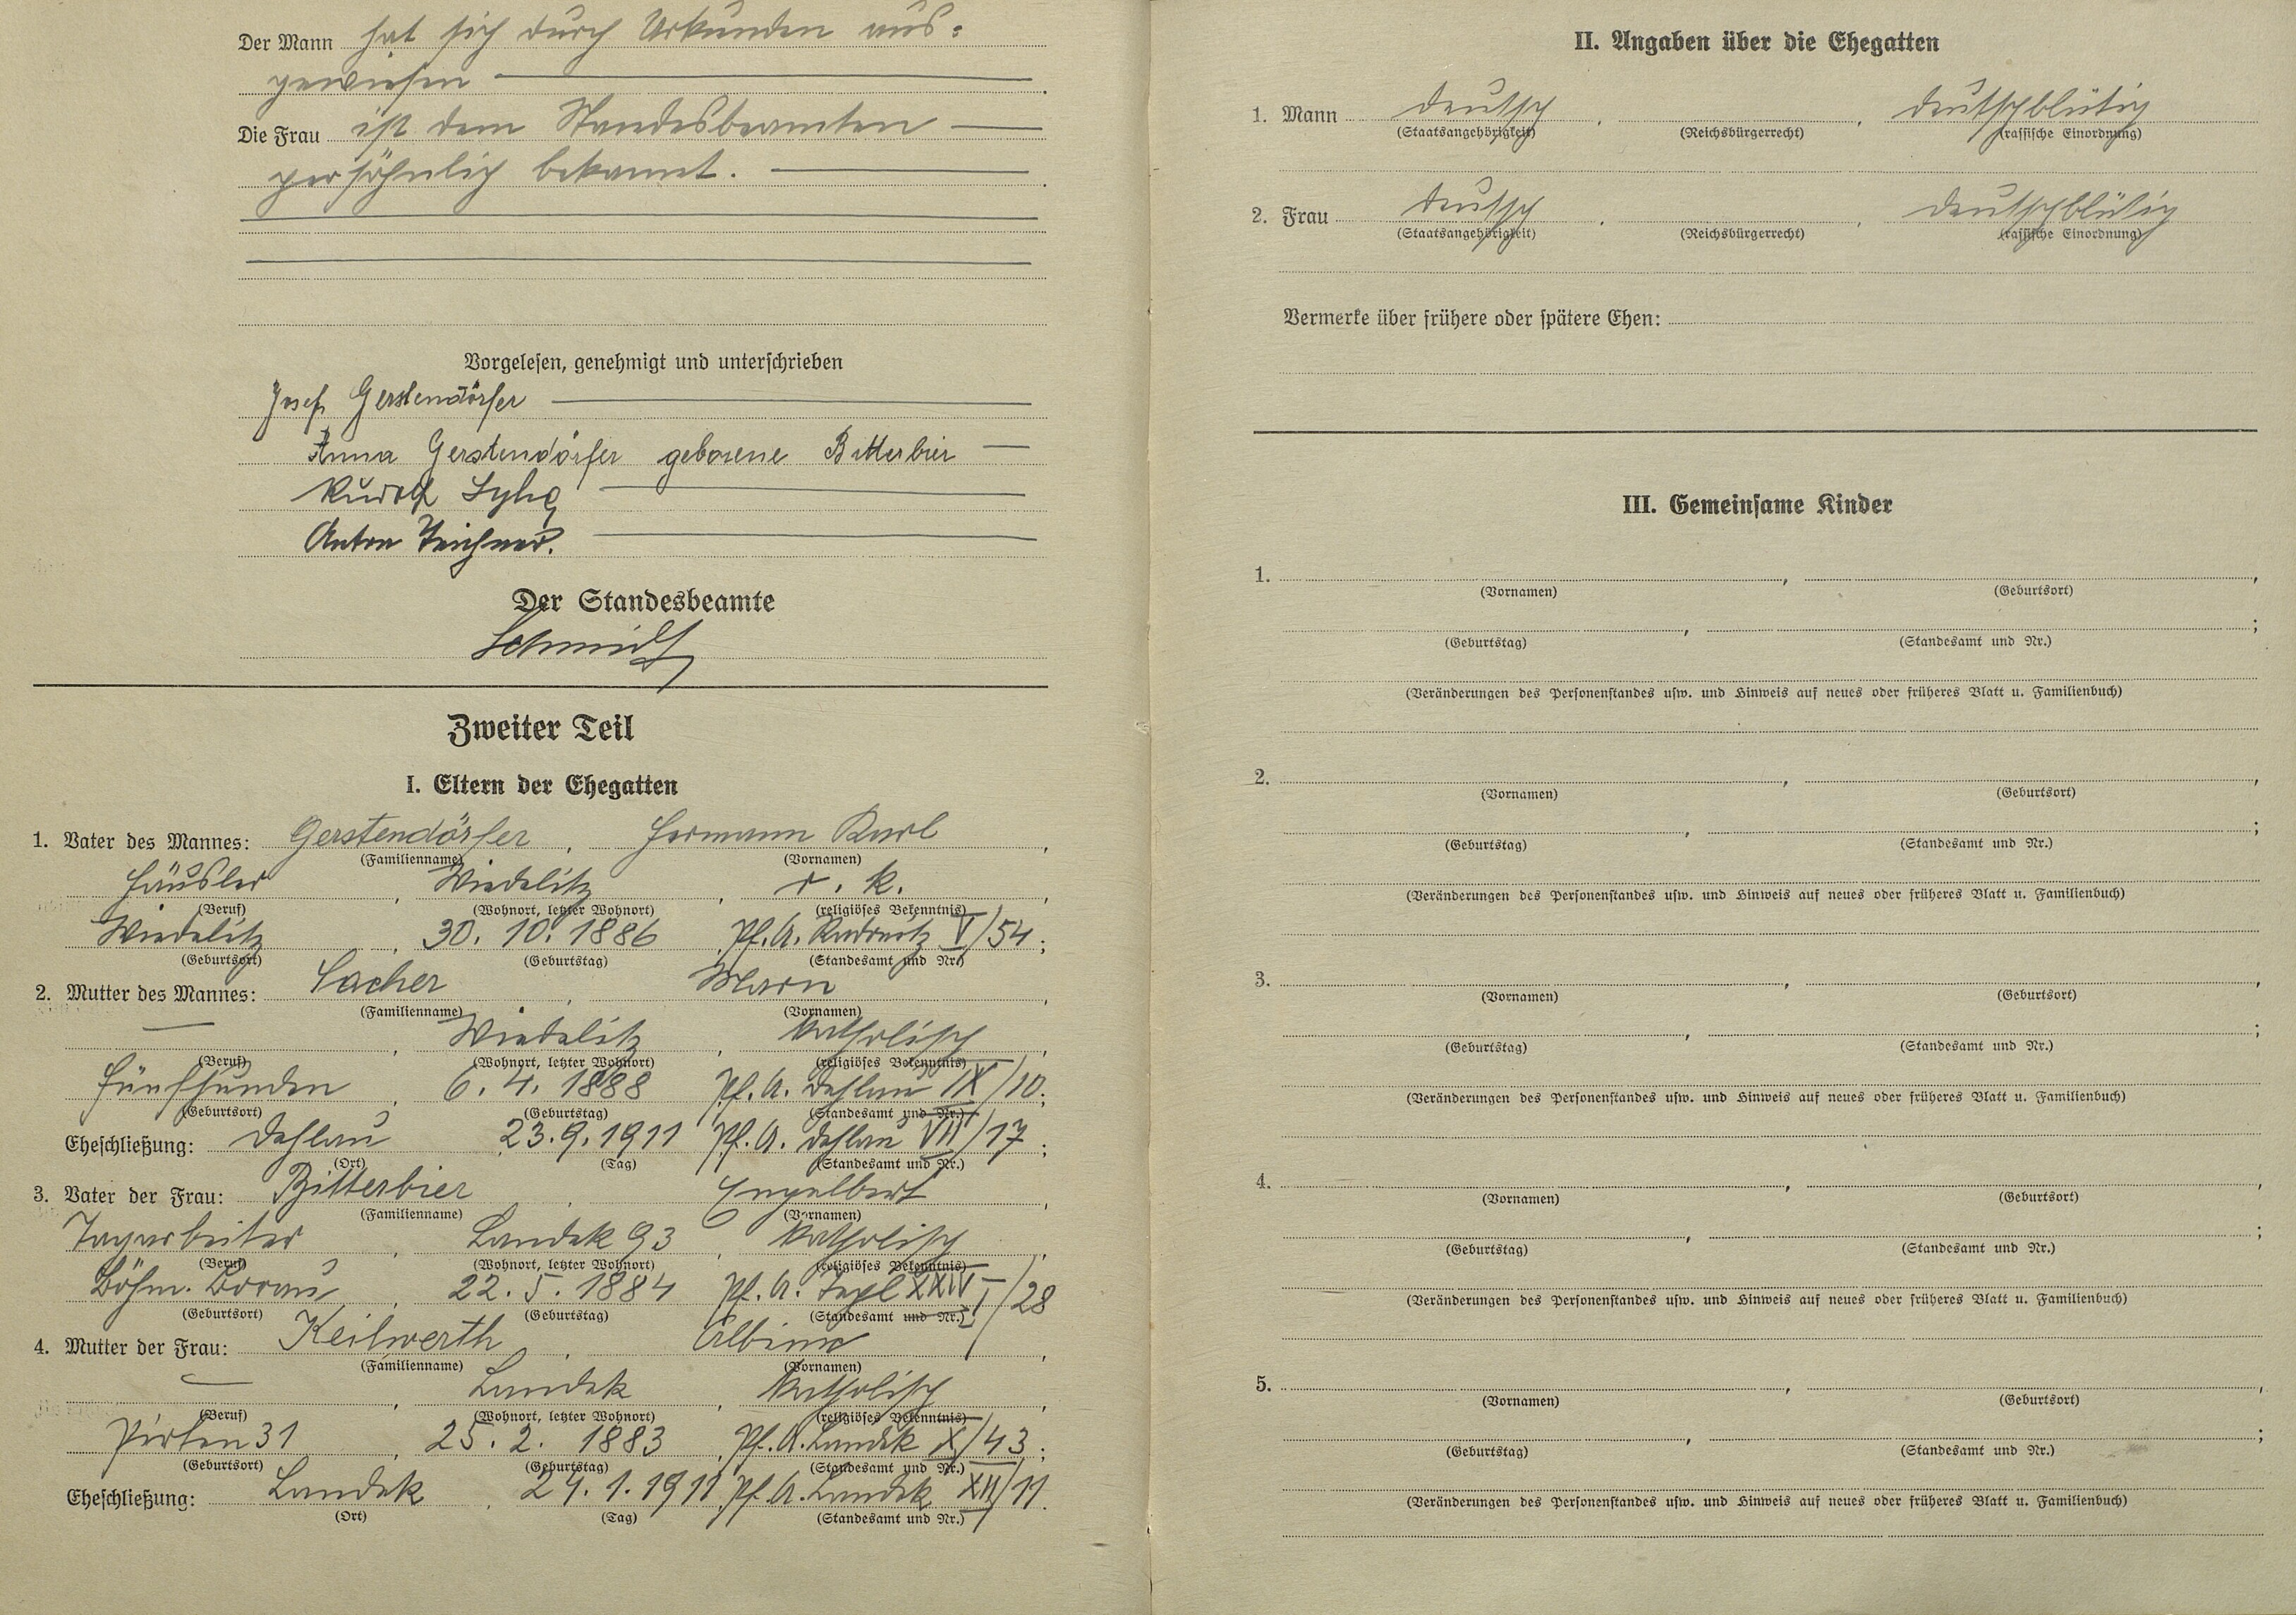 Der Mann hat sich durch Urkunden aus-
gewiesen
Die Frau ist dem Standesbeamten
persöhnlich bekannt.
Vorgelesen, genehmigt und unterschrieben
Josef Gerstendörfer
Anna Gerstendörfer geborene Bitterbier
Rudolf
Anton
Der Standesbeamte
Schmidt
Zweiter Teil
I. Eltern der Ehegatten
1. Vater des Mannes: Gerstendörfer, Hermann Karl,
(Familienname) (Vornamen)
Häusler, Wiedelitz, r. k.,
(Beruf) (Wohnort, letzter Wohnort) (religiöses Bekenntnis)
Wiedelitz, 30. 10. 1886, Pf. A. V/54;
(Geburtsort) (Geburtstag) (Standesamt und Nr.)
2. Mutter des Mannes: Sacher, Marie,
(Familienname) (Vornamen)
—, Wiedelitz, katholisch,
(Beruf) (Wohnort, letzter Wohnort) (religiöses Bekenntnis)
Fünfhunden, 6. 4. 1888, Pf. A. Dehlau IX/10;
(Geburtsort) (Geburtstag) (Standesamt und Nr.)
Eheschließung: Dehlau, 23. 9. 1911 Pf. A. Dehlau VII/17;
(Ort) (Tag) (Standesamt und Nr.)
3. Vater der Frau: Bitterbier, Engelbert,
(Familienname) (Vornamen)
Tagarbeiter, Landek 93, katholisch,
(Beruf) (Wohnort, letzter Wohnort) (religiöses Bekenntnis)
Böhm. Borau, 22. 5. 1884 Pf. A. Tepl XXIV I/28
(Geburtsort) (Geburtstag) (Standesamt und Nr.)
4. Mutter der Frau: Keilwerth, Albine,
(Familienname) (Vornamen)
—, Landek, katholisch,
(Beruf) (Wohnort, letzter Wohnort) (religiöses Bekenntnis)
Pirten 31, 25. 2. 1883, Pf. A. Landek X/43;
(Geburtsort) (Geburtstag) (Standesamt und Nr.)
Eheschließung: Landek, 24. 1. 1911 Pf. A. Landek XII/11.
(Ort) (Tag) (Standesamt und Nr.)
II. Angaben über die Ehegatten
1. Mann deutsch, , deutschblütig
(Staatsangehörigkeit) (Reichsbürgerrecht) (rassische Einordnung)
2. Frau deutsch, , deutschblütig
(Staatsangehörigkeit) (Reichsbürgerrecht) (rassische Einordnung)
Vermerke über frühere oder spätere Ehen:
III. Gemeinsame Kinder
1. , ,
(Vornamen) (Geburtsort)
, ;
(Geburtstag) (Standesamt und Nr.)
(Veränderungen des Personenstandes usw. und Hinweis auf neues oder früheres Blatt u. Familienbuch)
2. , ,
(Vornamen) (Geburtsort)
, ;
(Geburtstag) (Standesamt und Nr.)
(Veränderungen des Personenstandes usw. und Hinweis auf neues oder früheres Blatt u. Familienbuch)
3. , ,
(Vornamen) (Geburtsort)
, ;
(Geburtstag) (Standesamt und Nr.)
(Veränderungen des Personenstandes usw. und Hinweis auf neues oder früheres Blatt u. Familienbuch)
4. , ,
(Vornamen) (Geburtsort)
, ;
(Geburtstag) (Standesamt und Nr.)
(Veränderungen des Personenstandes usw. und Hinweis auf neues oder früheres Blatt u. Familienbuch)
5. , ,
(Vornamen) (Geburtsort)
, ;
(Geburtstag) (Standesamt und Nr.)
(Veränderungen des Personenstandes usw. und Hinweis auf neues oder früheres Blatt u. Familienbuch)